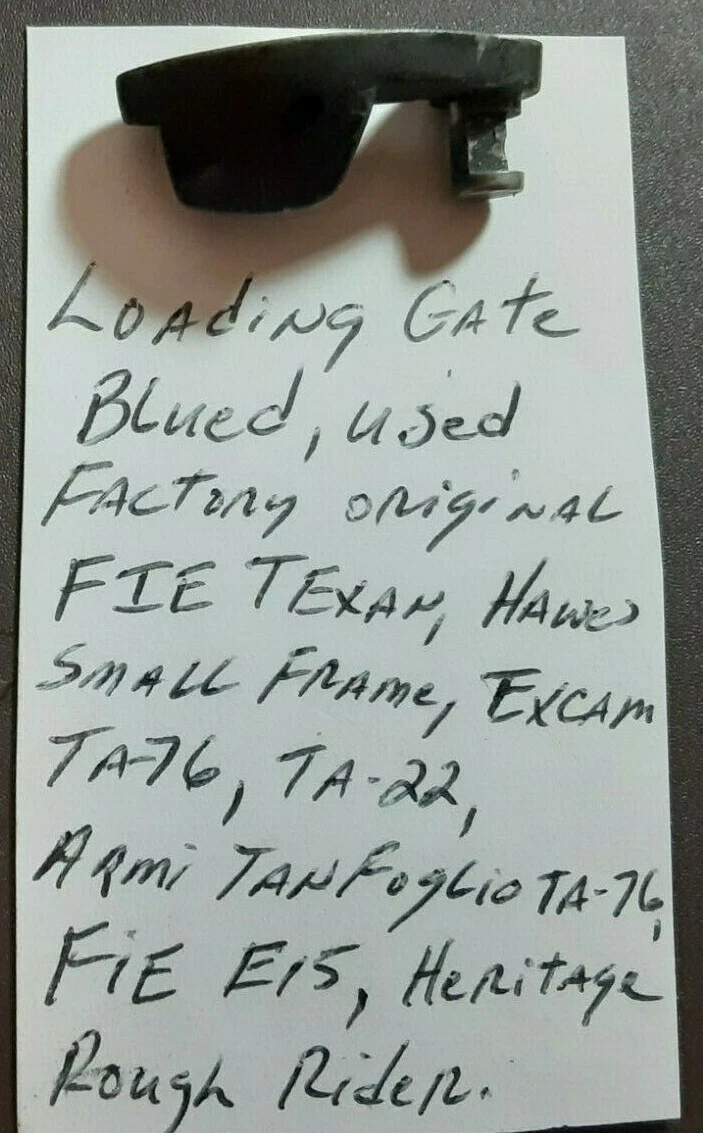 Loading Gate
Blued, used
Factory original
FIE TEXAN, Hawes
Small Frame, Excam
TA-76, TA-22,
Armi TanFoglio TA-76,
FiE E15, Heritage
Rough Rider.